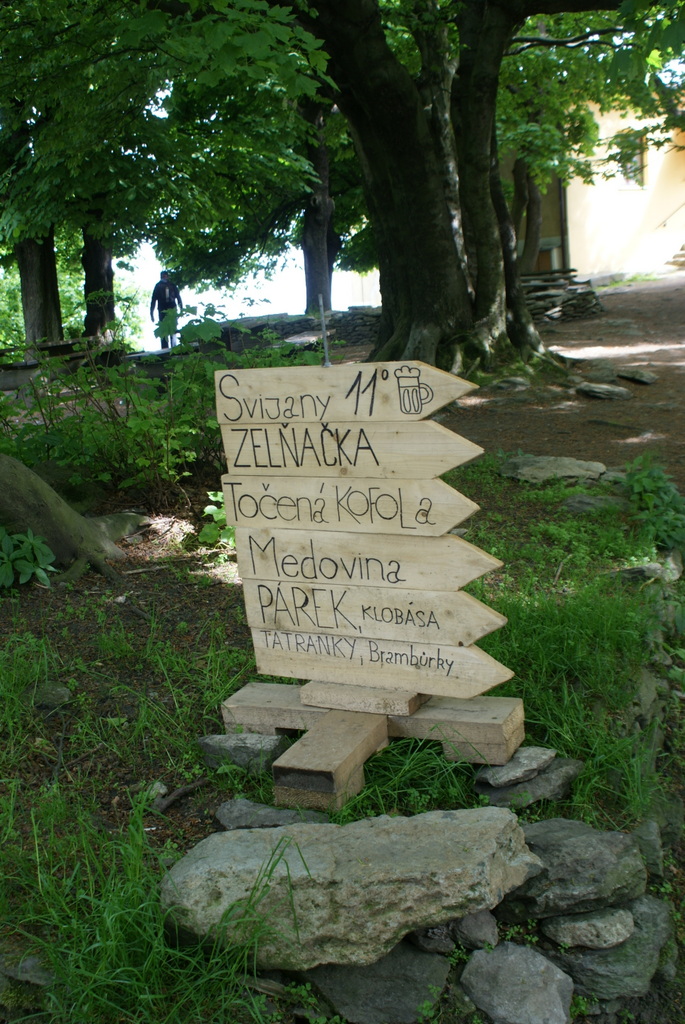 Svijany 11°
ZELŇAČKA
Točená KOFOLa
Medovina
PÁREK, KLOBÁSA
TATRANKY, Brambůrky